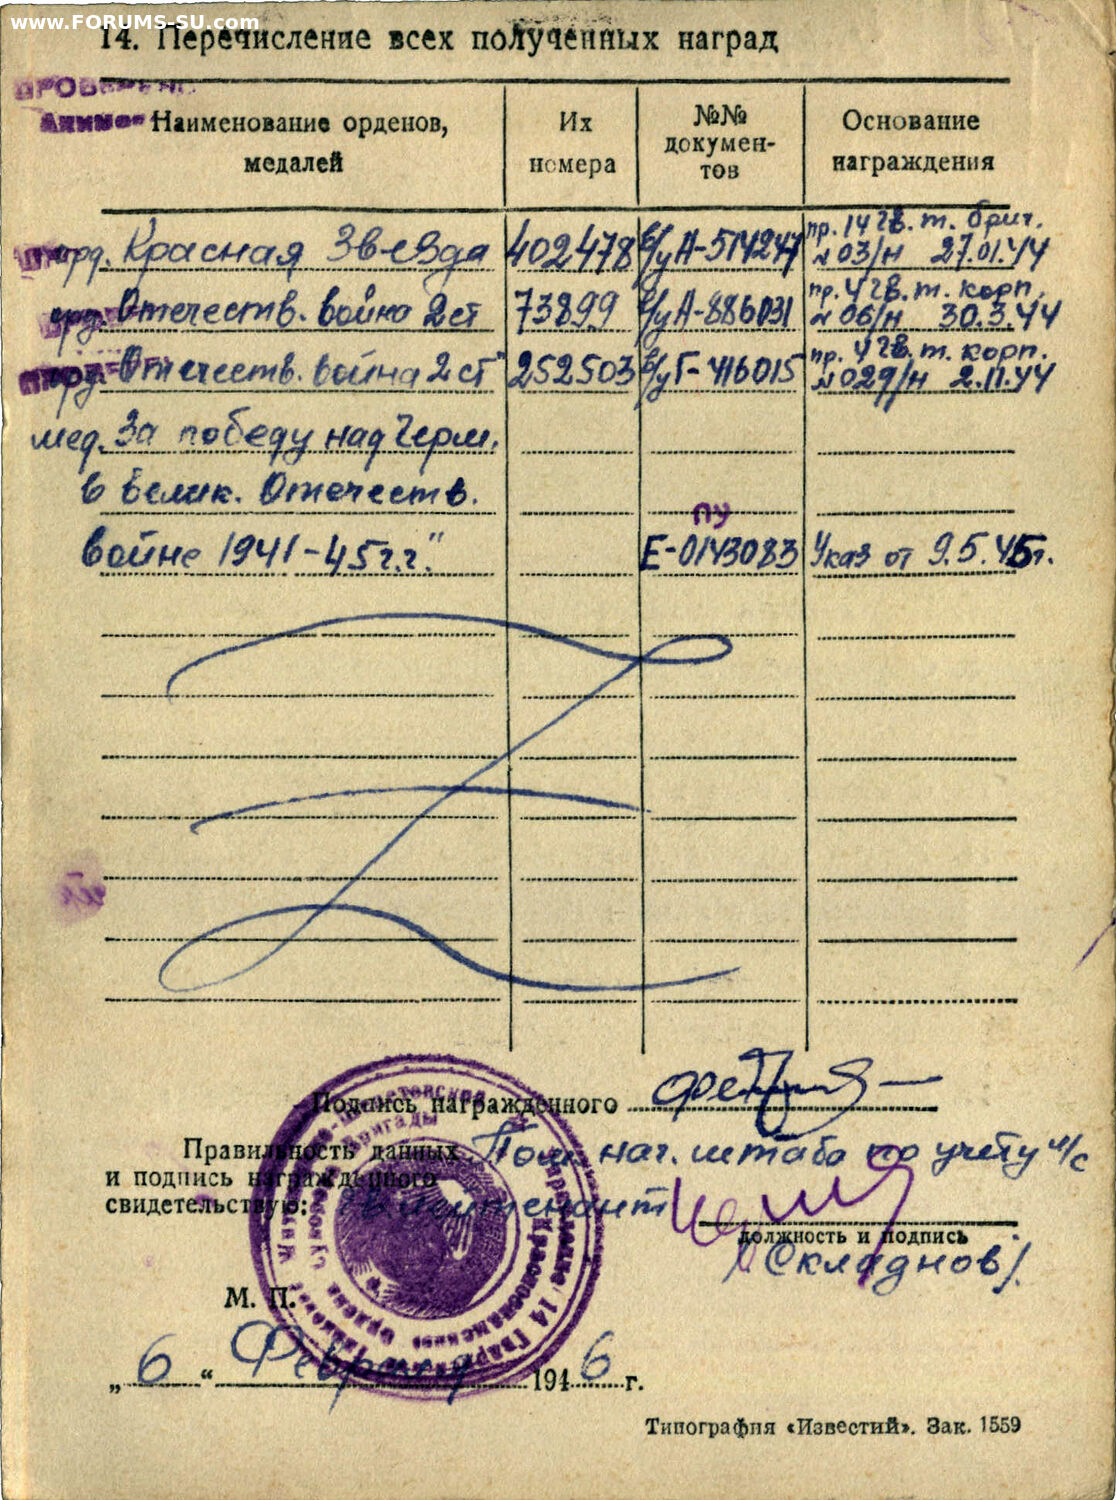 www.FORUMS-SU.com
14. Перечисление всех полученных наград
ПРОВЕРЕНО
Наименование орденов, медалей
Их номера
№№ докумен-
тов
Основание награждения
орд. Красная Звезда 402478 в/у А-514247 пр. 14 гв. т. бриг.
№ 03/н 27.01.44
орд. Отечеств. война 2 ст 73899 в/у А-886031 пр. 4 гв. т. корп.
№ 06/н 30.3.44
орд. Отечеств. война 2 ст" 252503 в/у Г-416015 пр. 4 гв. т. корп.
№ 029/н 2.11.44
мед. За победу над Герм.
в велик. Отечеств.
ПУ
войне 1941-45 г.г." Е-0143083 Указ от 9.5.45г.
Подпись награжденного
Правильность данных Пом. нач. штаба по учету л/с
и подпись награжденного
свидетельствую: лейтенант
должность и подпись
/Складнов/.
М. П.
„6“ Февраля 1946 г.
Типография «Известий». Зак. 1559